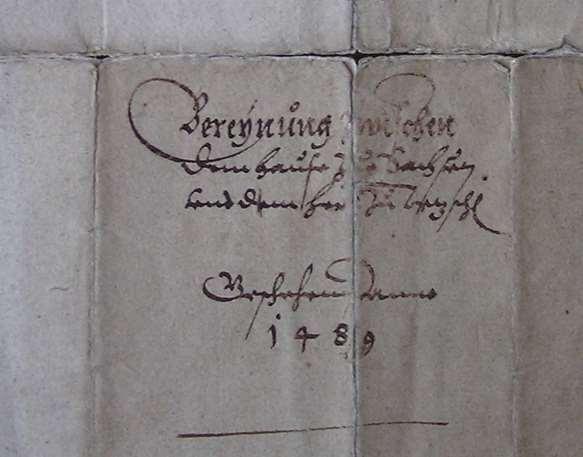 Vereynúng zwischen
dem hause zu Sachsen
und dem her zu
Geschehen Anno
1489